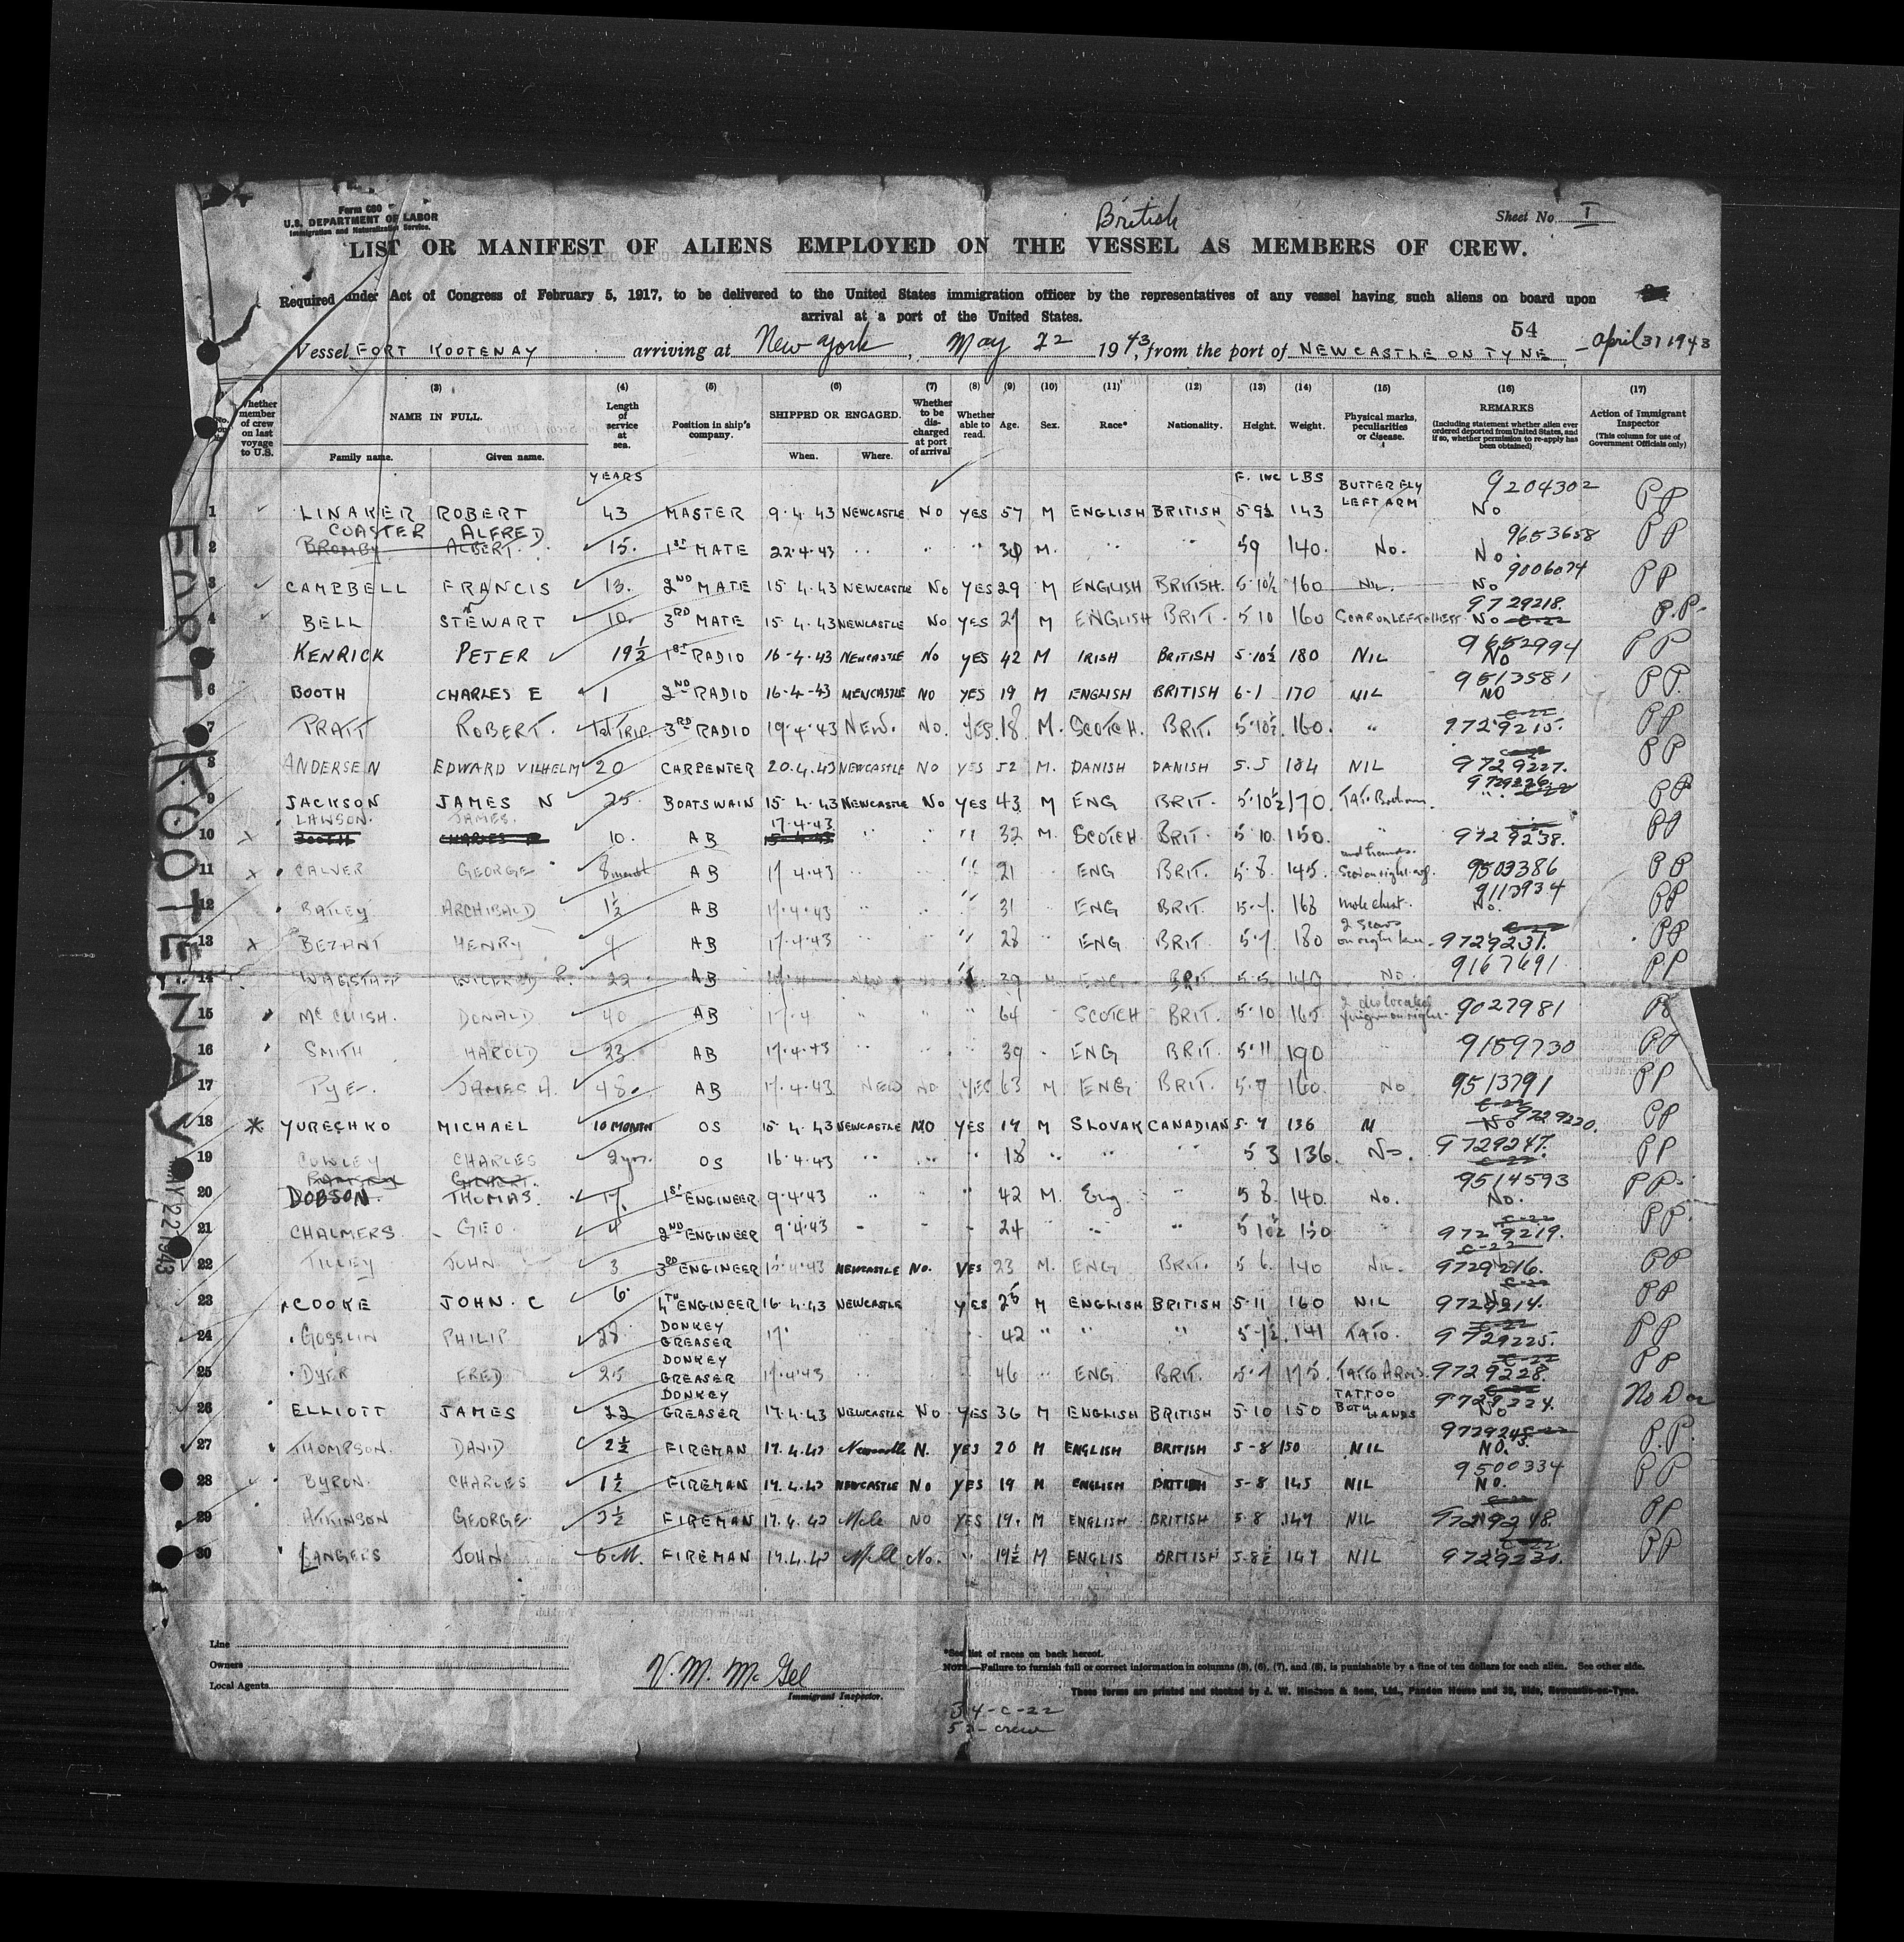 Form 680
U.S. DEPARTMENT OF LABOR
Immigration and Naturalization Service.
British
Sheet No. I
LIST OR MANIFEST OF ALIENS EMPLOYED ON THE VESSEL AS MEMBERS OF CREW.
Required under Act of Congress of February 5, 1917, to be delivered to the United States immigration officer by the representatives of any vessel having such aliens on board upon
arrival at a port of the United States.
54
Vessel FORT KOOTENAY arriving at New York, May 22 1943, from the port of NEWCASTLE ON TYNE - April 31 1943
(3) (4) (5) (6) (7) (8) (9) (10) (11) (12) (13) (14) (15) (16) (17)
Whether member of crew on last voyage to U.S. NAME IN FULL. Family name. Given name. Length of service at sea. Position in ship's company. SHIPPED OR ENGAGED. When. Where. Whether to be discharged at port of arrival Whether able to read. Age. Sex. Race* Nationality. Height. Weight. Physical marks, peculiarities or disease. REMARKS (Including statement whether alien ever ordered deported from United States, and if so, whether permission to re-apply has been obtained) Action of Immigrant Inspector (This column for use of Government Officials only)
YEARS F. INC LBS
1 LINAKER ROBERT 43 MASTER 9.4.43 NEWCASTLE NO YES 57 M ENGLISH BRITISH 5 9½ 143 BUTTERFLY LEFT ARM 9204302 No PP
2 COASTER ALFRED 15. 1ST MATE 22.4.43 .. .. .. M. .. .. 59 140. No. 9653658 No. PP
BROMBY ALBERT.
3 CAMPBELL FRANCIS 13. 2ND MATE 15.4.43 NEWCASTLE No YES 29 M ENGLISH BRITISH. 5 10½ 160 NIL No 9006074 PP
4 BELL STEWART 10. 3RD MATE 15.4.43 NEWCASTLE No YES 21 M ENGLISH BRIT. 5 10 160 SCAR ON LEFT CHEST 9729218. No C-22 P.P.
5 KENRICK PETER 19½ 1ST RADIO 16-4-43 NEWCASTLE No YES 42 M IRISH BRITISH 5-10½ 180 NIL 9652994 No PP
6 BOOTH CHARLES E 1 2ND RADIO 16-4-43 NEWCASTLE NO YES 19 M ENGLISH BRITISH 6-1 170 NIL 9513581 NO PP.
7 PRATT ROBERT. 1st TRIP 3RD RADIO 19.4.43 NEW. NO. YES. 18 M. SCOTCH. BRIT. 5-10½. 160. " C-22 9729215. PP
8 ANDERSEN EDWARD VILHELM 20 CARPENTER 20.4.43 NEWCASTLE NO YES 52 M. DANISH DANISH 5.5 184 NIL 9729227. PP
9 JACKSON JAMES N 25. BOATSWAIN 15.4.43 NEWCASTLE No YES 43 M ENG BRIT. 5-10½ 170. 9729226. PP
10 LAWSON. JAMES. 10. AB 17.4.43 .. " " 32 M. SCOTCH BRIT 5 10. 150. " 9729238. PP
11 CALVER GEORGE 8 AB 17.4.43 .. " 21 ENG BRIT. 5.8. 145. 9503386 PP
12 BAILEY ARCHIBALD 1½ AB 17.4.43 .. .. " 31 ENG BRIT. 163 mole chest. 9113934 No. PP
13 BEZANT HENRY 9 AB 17.4.43 " 28 ENG BRIT. 5.7. 180 2 scars on right knee 9729231. PP
14 WAGSTAFF WILFRED R. 22 AB 39 M. ENG BRIT 5.5 140 No. 9167691 PP
15 McCUISH. DONALD 40 AB 17.4 " " " 64 SCOTCH BRIT. 5.10 165 2 dislocated 9027981
16 SMITH HAROLD 23 AB 17.4.43 .. .. 39 ENG BRIT. 5.11 190 9159730 PP
17 PYE. JAMES A. 48. AB 17.4.43 NEW NO YES 63 M ENG. BRIT. 5.7 160. No 9513791 PP
18 YURECHKO MICHAEL 10 MONTH OS 15.4.43 NEWCASTLE NO YES 19 M SLOVAK CANADIAN 5.9 136 C-22 No 9729220. PP
19 COWLEY CHARLES 2 yrs. OS 16.4.43 .. .. " 18 .. .. .. 5 3 136. No. 9729247. C-22 PP
20 DOBSON. THOMAS. 17. 1ST ENGINEER 9.4.43 .. .. " 42 M. Eng. 5 8. 140. No. 9514593 No. PP.
21 CHALMERS. GEO. 4 2ND ENGINEER 9.4.43 - - - 24 .. .. " 5 10½ 150 C-22 9729219. PP.
22 TILLEY JOHN 3 3RD ENGINEER NEWCASTLE NO. YES 23 M. ENG BRIT. 5 6. 140 NIL. C-22 9729216. PP
23 COOKE JOHN. C 6. 4TH ENGINEER 16.4.43 NEWCASTLE YES 25 M ENGLISH BRITISH 5.11 160 NIL C-22 9729214. PP
24 GOSSLIN PHILIP 28 DONKEY GREASER 17. 42 " " " 141 TATO. C-22 9729225. PP
25 DYER FRED 25 DONKEY GREASER 17.4.43 46 .. ENG. BRIT. 5.7 175. TATTO ARMS. C-22 9729228. PP
26 ELLIOTT JAMES 22 DONKEY GREASER 17.4.43 NEWCASTLE NO YES 36 M ENGLISH BRITISH 5-10 150 TATTOO BOTH HANDS 9729224. No No Doc
27 THOMPSON. DAVID 2½ FIREMAN 17.4.43 Newcastle N. YES 20 M ENGLISH BRITISH 5-8 150 NIL 9729245. C-22 NO. P.P.
28 BYRON. CHARLES 1½ FIREMAN 17.4.43 NEWCASTLE NO YES 19 M ENGLISH BRITISH 5-8 145 NIL 9500334 No. PP
29 ATKINSON GEORGE 3½ FIREMAN 17.4.43 NO YES 19. M ENGLISH BRITISH 5-8 147 NIL C-22 9729248. PP
30 LANGERS JOHN 6 M. FIREMAN 17.4.43 No. " 19½ M ENGLIS BRITISH 5-8½ 147 NIL C-22 9729230. PP
FORT KOOTENAY
MAY 22 1943
Line
Owners
Local Agents
Immigrant Inspector.
*See list of races on back hereof.
NOTE.—Failure to furnish full or correct information in columns (3), (6), (7), and (8), is punishable by a fine of ten dollars for each alien. See other side.
These forms are printed and stocked by J. W. Hindson & Sons, Ltd., Pandon House and 38, Side, Newcastle-on-Tyne.
34-C-22
52-crew